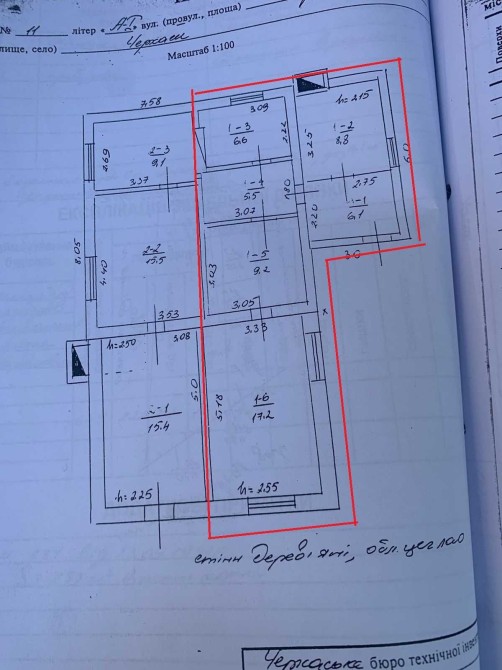 № 11 літер « А-I » вул. (провул., площа)
лище, село) Черкаси
Масштаб 1:100
7.58
3.09
h=2.15
1-3
6.6
2.22
3.25
1-2
8.8
2-3
9.1
2.69
3.37
1-4
5.5
1.80
2.75
6.0
3.07
2.20
1-1
6.1
3.0
8.05
2-2
15.5
4.40
1-5
9.2
3.03
3.05
3.53
3.33
h=250
3.08
5.0
5.18
1-6
17.2
2-1
15.4
h=225
h=2.55
стіни дерев'яні, обл. цеглою
Черкаське бюро технічної інвен